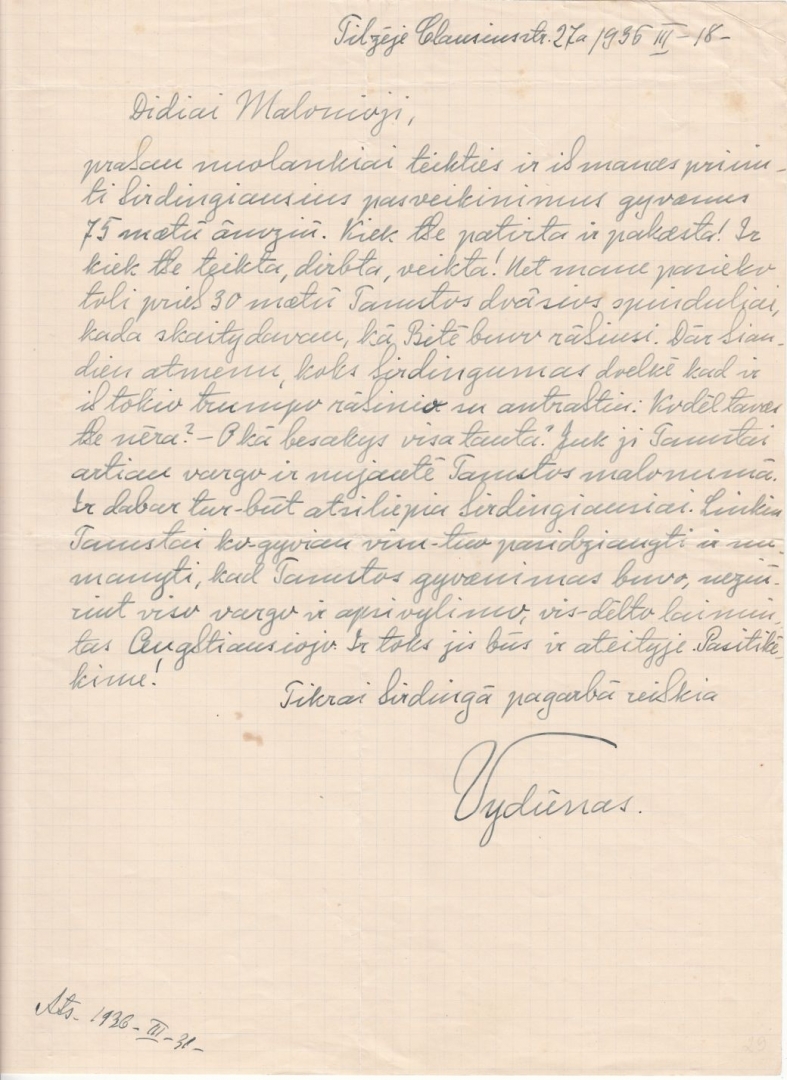 Tilžėje Clausiusstr. 27a 1936 III - 18 -
Didiai Malonioji,
prašau nuolankiai teikties ir iš manęs priim-
ti širdingiausius pasveikinimus gyvenus
75 metų ámžių. Kiek tše patirta ir pakęsta! Ir
kiek tše teikta, dirbta, veikta! Net mane pasieko
toli prieš 30 metų Tamstos dvãsios spinduliai,
kada skaitydavau, ką Bitė buvo rãšiusi. Dãr šian-
dien atmenu, koks širdingumas dvelkė kad ir
iš tokio trumpo rãšinio su antraštiu: Kodėl tavęs
tše nėra? - O ką besakys visa tauta? Juk ji Tamstai
artiau vargo ir nujautė Tamstos malonumą.
Ir dabar tur-būt atsiliepia širdingiausiai. Linkiu
Tamstai ko-gyviau visu-tuo pasidžiaugti ir nu-
manyti, kad Tamstos gyvenimas buvo, nežiū-
rint viso vargo ir apsivylimo, vis-dėlto laimin-
tas Augštiausiojo. Ir toks jis bus ir ateityje. Pasitikė-
kime!
Tikrai širdingą pagarbą reiškia
Vydūnas.
Ats. 1936 - III - 31 -